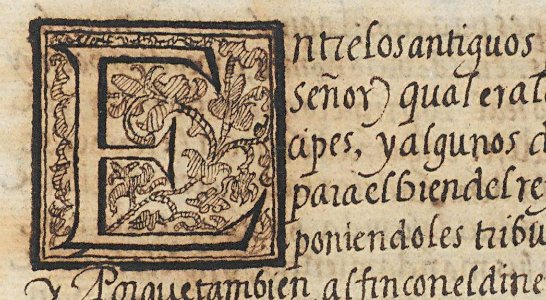 Entre los antiguos
señor) qual era l
cipes, y algunos d
para el bien del re
poniendoles tribu
y Porque tambien al fin con el dine